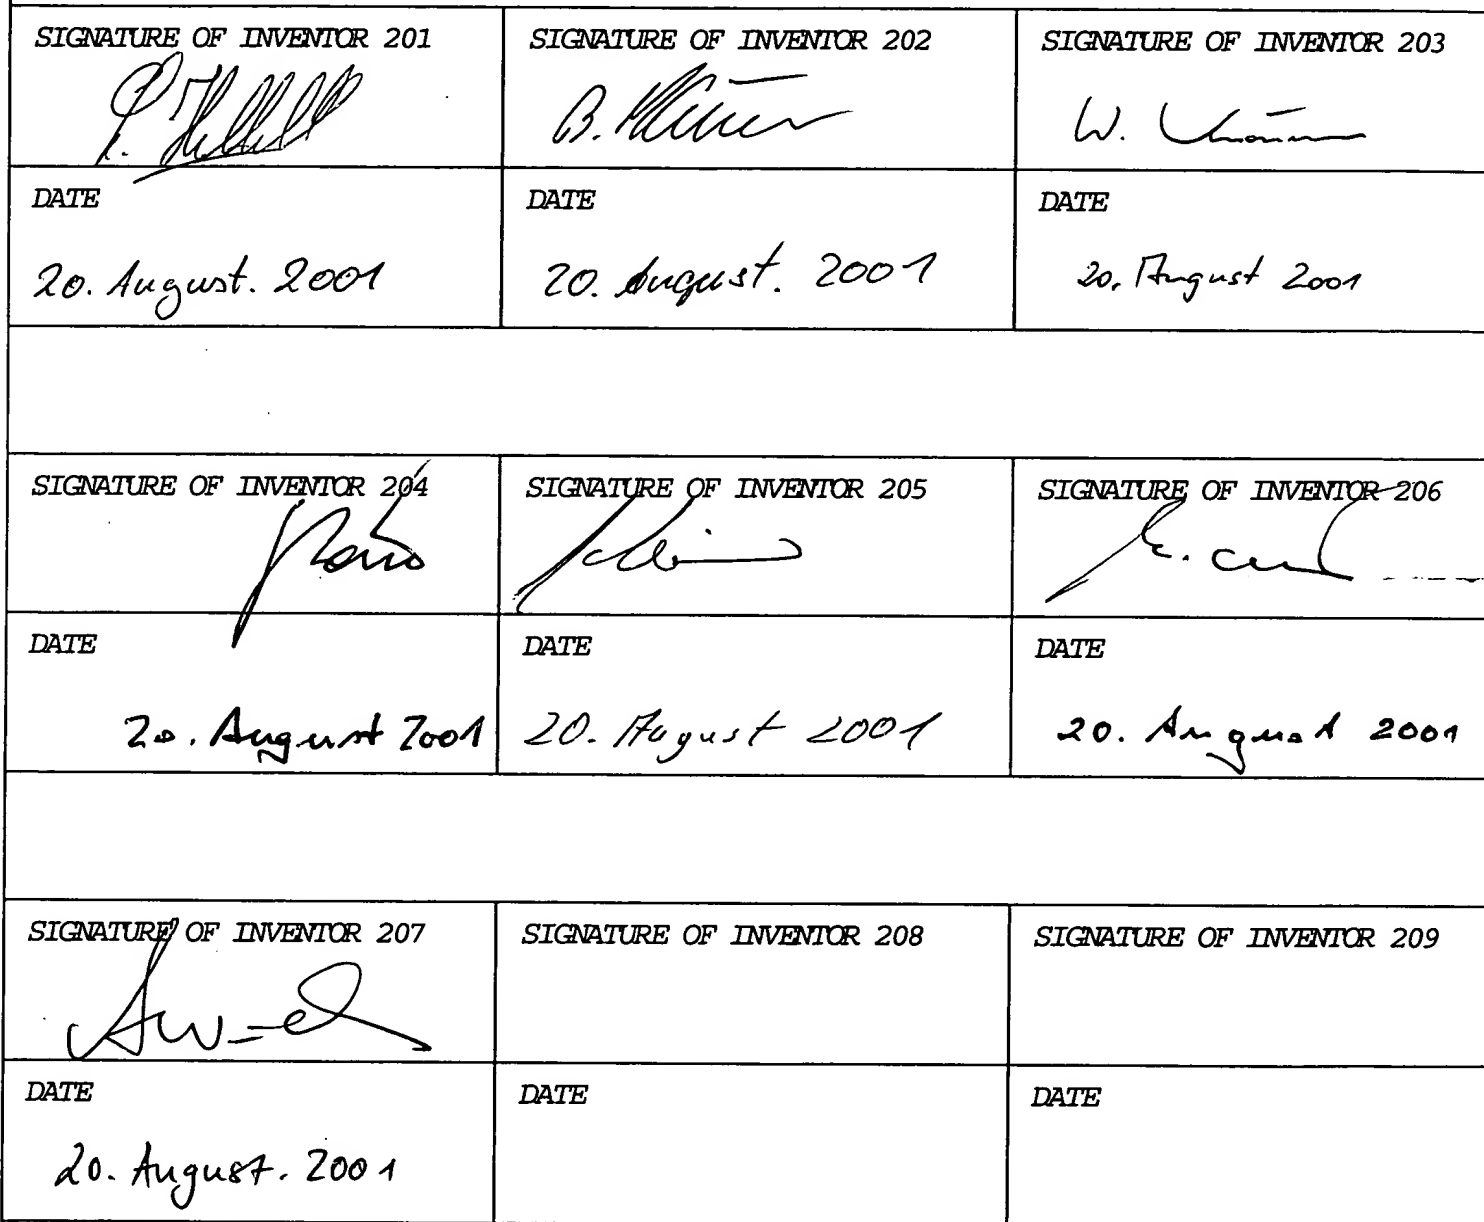 SIGNATURE OF INVENTOR 201
SIGNATURE OF INVENTOR 202
SIGNATURE OF INVENTOR 203
B.
W.
DATE
DATE
DATE
20. August. 2001
20. August. 2001
20. August 2001
SIGNATURE OF INVENTOR 204
SIGNATURE OF INVENTOR 205
SIGNATURE OF INVENTOR 206
DATE
DATE
DATE
20. August 2001
20. August 2001
20. August 2001
SIGNATURE OF INVENTOR 207
SIGNATURE OF INVENTOR 208
SIGNATURE OF INVENTOR 209
DATE
DATE
DATE
20. August. 2001